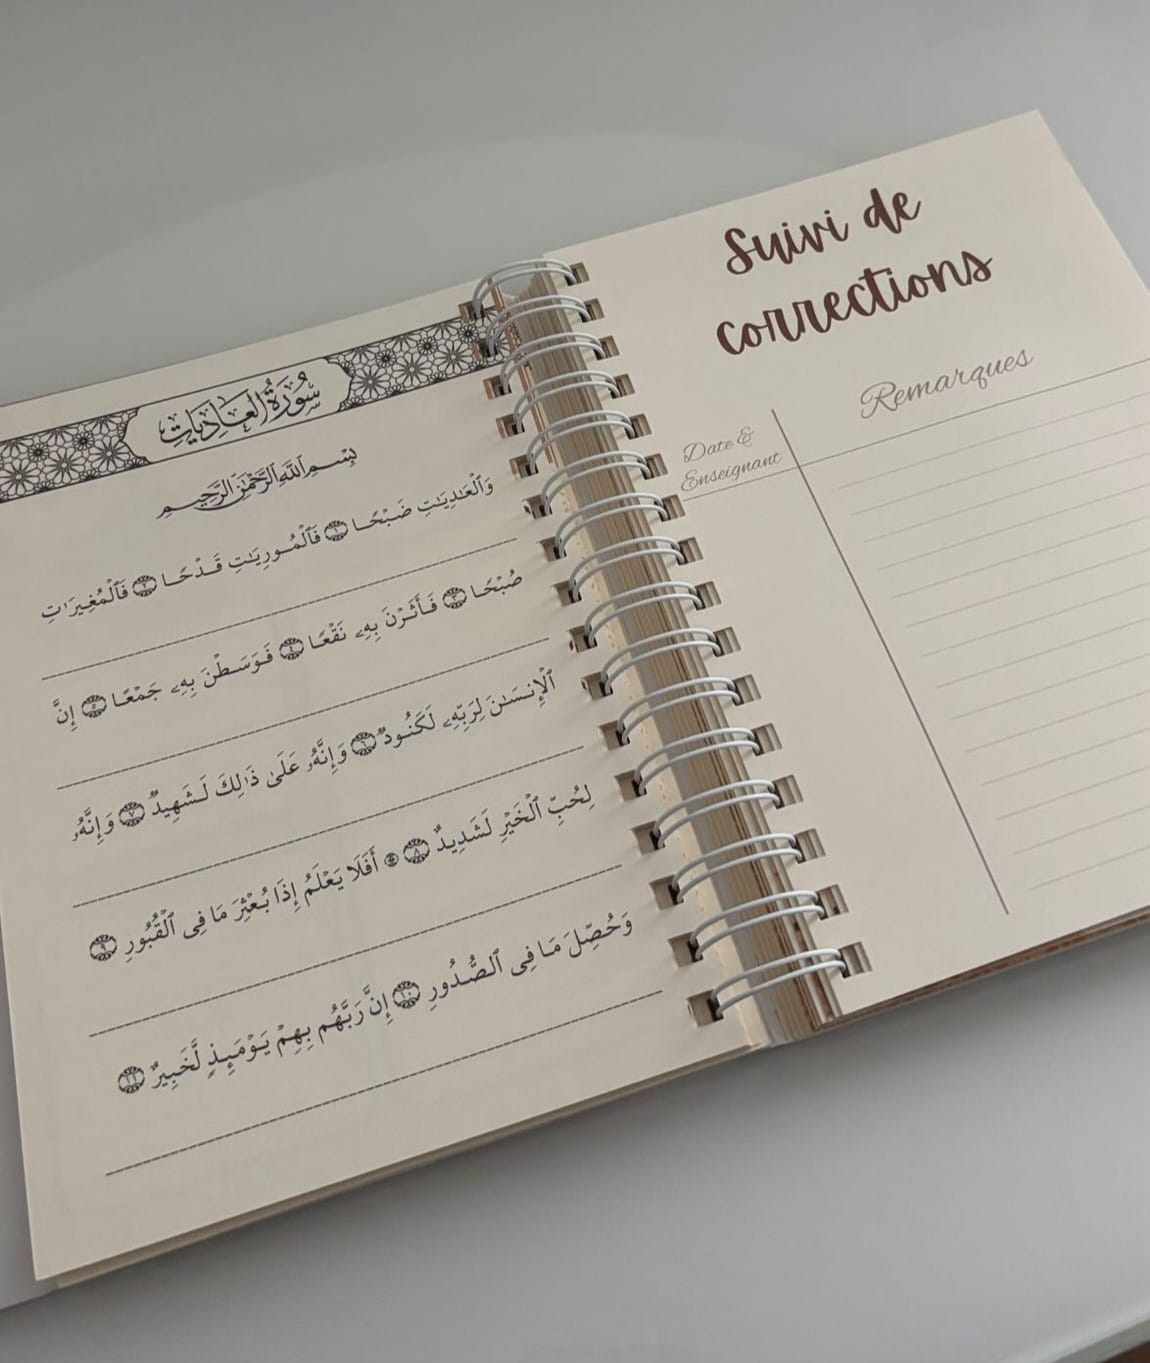 سُورَةُ العَادِيَاتِ
بِسْمِ ٱللَّهِ ٱلرَّحْمَٰنِ ٱلرَّحِيمِ
وَٱلْعَٰدِيَٰتِ ضَبْحًا ١ فَٱلْمُورِيَٰتِ قَدْحًا ٢ فَٱلْمُغِيرَٰتِ
صُبْحًا ٣ فَأَثَرْنَ بِهِۦ نَقْعًا ٤ فَوَسَطْنَ بِهِۦ جَمْعًا ٥ إِنَّ
ٱلْإِنسَٰنَ لِرَبِّهِۦ لَكَنُودٌ ٦ وَإِنَّهُۥ عَلَىٰ ذَٰلِكَ لَشَهِيدٌ ٧ وَإِنَّهُۥ
لِحُبِّ ٱلْخَيْرِ لَشَدِيدٌ ٨ ۞ أَفَلَا يَعْلَمُ إِذَا بُعْثِرَ مَا فِى ٱلْقُبُورِ ٩
وَحُصِّلَ مَا فِى ٱلصُّدُورِ ١٠ إِنَّ رَبَّهُم بِهِمْ يَوْمَئِذٍ لَّخَبِيرٌ ١١
Suivi de
corrections
Remarques
Date &
Enseignant